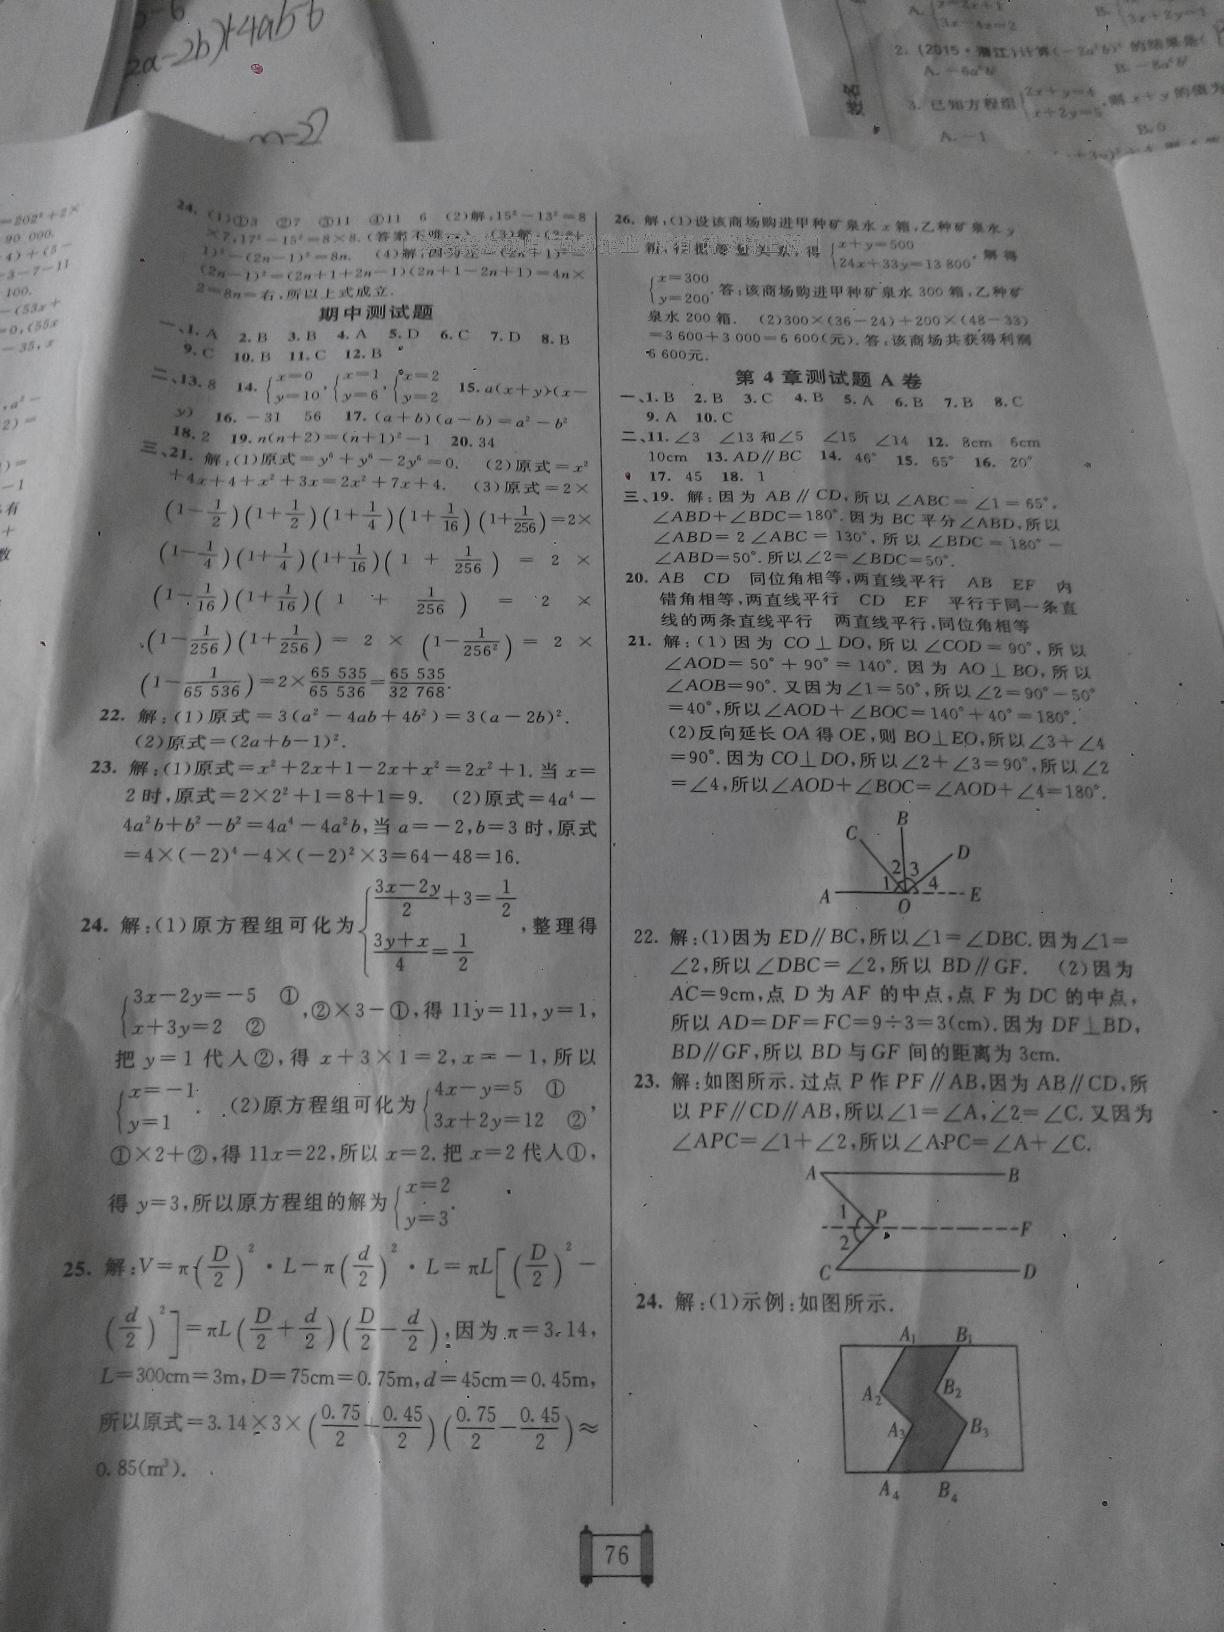 2a-2b)+4ab-b
A.
3x-4x=2
B.
3x+2y=1
2.(2015·潜江)计算(-2a²b)³的结果是(
A.-6a⁶b³
B.-8a⁶b³
3.已知方程组{2x+y=4 x+2y=5,则x+y的值为
A.-1
B.0
姓名
=202²+2×
90 000.
24.(1)①3 ②7 ③11 ④11 6 (2)解:15²-13²=8
×7,17²-15²=8×8.(答案不唯一) (3)解:(2n+
1)²-(2n-1)²=8n. (4)解:因为左=(2n+1)²-
(2n-1)²=(2n+1+2n-1)(2n+1-2n+1)=4n×
2=8n=右,所以上式成立.
期中测试题
一、1.A 2.B 3.B 4.A 5.D 6.C 7.D 8.B
9.C 10.B 11.C 12.B
二、13.8 14.{x=0 y=10,{x=1 y=6,{x=2 y=2 15.a(x+y)(x-
y) 16.-31 56 17.(a+b)(a-b)=a²-b²
18.2 19.n(n+2)=(n+1)²-1 20.34
三、21.解:(1)原式=y⁶+y⁶-2y⁶=0. (2)原式=x²
+4x+4+x²+3x=2x²+7x+4. (3)原式=2×
(1-1/2)(1+1/2)(1+1/4)(1+1/16)(1+1/256)=2×
(1-1/4)(1+1/4)(1+1/16)(1+1/256)=2×
(1-1/16)(1+1/16)(1+1/256)=2×
(1-1/256)(1+1/256)=2×(1-1/256²)=2×
(1-1/65 536)=2×65 535/65 536=65 535/32 768.
22.解:(1)原式=3(a²-4ab+4b²)=3(a-2b)².
(2)原式=(2a+b-1)².
23.解:(1)原式=x²+2x+1-2x+x²=2x²+1.当x=
2时,原式=2×2²+1=8+1=9. (2)原式=4a⁴-
4a²b+b²-b²=4a⁴-4a²b,当a=-2,b=3时,原式
=4×(-2)⁴-4×(-2)²×3=64-48=16.
24.解:(1)原方程组可化为{(3x-2y)/2+3=1/2 (3y+x)/4=1/2,整理得
{3x-2y=-5 ① x+3y=2 ②,②×3-①,得11y=11,y=1,
把y=1代入②,得x+3×1=2,x=-1,所以
{x=-1 y=1. (2)原方程组可化为{4x-y=5 ① 3x+2y=12 ②,
①×2+②,得11x=22,所以x=2.把x=2代入①,
得y=3,所以原方程组的解为{x=2 y=3.
25.解:V=π(D/2)²·L-π(d/2)²·L=πL[(D/2)²-
(d/2)²]=πL(D/2+d/2)(D/2-d/2),因为π=3.14,
L=300cm=3m,D=75cm=0.75m,d=45cm=0.45m,
所以原式=3.14×3×(0.75/2+0.45/2)(0.75/2-0.45/2)≈
0.85(m³).
26.解:(1)设该商场购进甲种矿泉水x箱,乙种矿泉水y
箱,根据等量关系,得{x+y=500 24x+33y=13 800,解得
{x=300 y=200.答:该商场购进甲种矿泉水300箱,乙种矿
泉水200箱. (2)300×(36-24)+200×(48-33)
=3 600+3 000=6 600(元).答:该商场共获得利润
6 600元.
第4章测试题A卷
一、1.B 2.B 3.C 4.B 5.A 6.B 7.B 8.C
9.A 10.C
二、11.∠3 ∠13和∠5 ∠15 ∠14 12.8cm 6cm
10cm 13.AD∥BC 14.46° 15.65° 16.20°
17.45 18.1
三、19.解:因为AB∥CD,所以∠ABC=∠1=65°,
∠ABD+∠BDC=180°.因为BC平分∠ABD,所以
∠ABD=2∠ABC=130°,所以∠BDC=180°-
∠ABD=50°.所以∠2=∠BDC=50°.
20.AB CD 同位角相等,两直线平行 AB EF 内
错角相等,两直线平行 CD EF 平行于同一条直
线的两条直线平行 两直线平行,同位角相等
21.解:(1)因为CO⊥DO,所以∠COD=90°,所以
∠AOD=50°+90°=140°.因为AO⊥BO,所以
∠AOB=90°.又因为∠1=50°,所以∠2=90°-50°
=40°,所以∠AOD+∠BOC=140°+40°=180°.
(2)反向延长OA得OE,则BO⊥EO,所以∠3+∠4
=90°.因为CO⊥DO,所以∠2+∠3=90°,所以∠2
=∠4,所以∠AOD+∠BOC=∠AOD+∠4=180°.
B
C
D
2 3
1 4
A
E
O
22.解:(1)因为ED∥BC,所以∠1=∠DBC.因为∠1=
∠2,所以∠DBC=∠2,所以BD∥GF. (2)因为
AC=9cm,点D为AF的中点,点F为DC的中点,
所以AD=DF=FC=9÷3=3(cm).因为DF⊥BD,
BD∥GF,所以BD与GF间的距离为3cm.
23.解:如图所示.过点P作PF∥AB,因为AB∥CD,所
以PF∥CD∥AB,所以∠1=∠A,∠2=∠C.又因为
∠APC=∠1+∠2,所以∠APC=∠A+∠C.
A B
1 P
2 F
C D
24.解:(1)示例:如图所示.
A₁ B₁
A₂ B₂
A₃ B₃
A₄ B₄
76